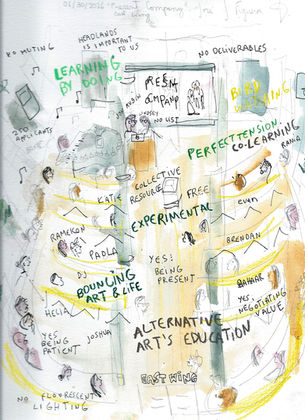 06/30/2016 "Present Company"
NO MUTING
HEADLANDS
IS IMPORTANT
TO US
NO DELIVERABLES
LEARNING
BY DOING
PRESENT
COMPANY
BIRD
WATCHING
NO LIST
APPLICANTS
PERFECT TENSION
CO-LEARNING
COLLECTIVE
RESOURCE
FREE
KATIE
EVAN
EXPERIMENTAL
RAMEKON
PAOLA
BRENDAN
YES!
BEING
PRESENT
DJ
BOUNCING
ART & LIFE
BAHAAR
HELIA
YES,
NEGOTIATING
VALUE
YES
BEING
PATIENT
JOSHUA
ALTERNATIVE
ART'S EDUCATION
EAST WING
NO FLOURESCENT
LIGHTING